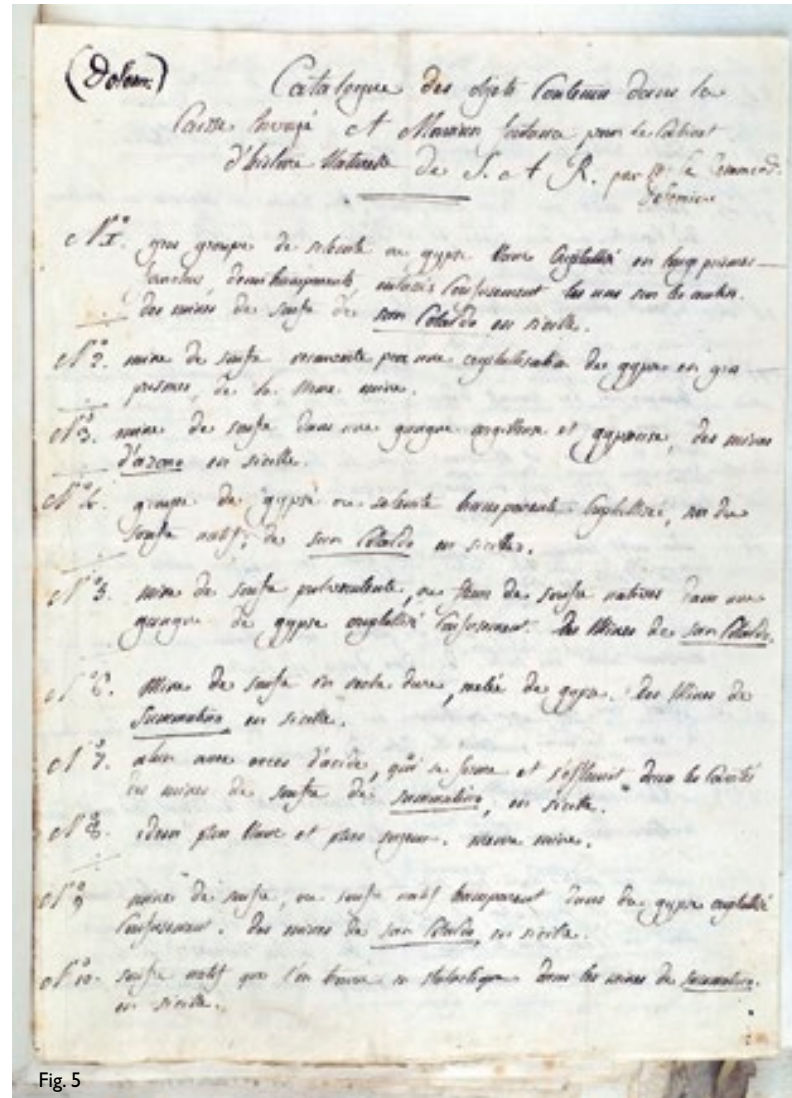 (Dolom:)
Catalogue des objets Contenus dans la
Caisse Envoyé A Monsieur fontana pour le Cabinet
d'histoire Naturelle de S. A R. par M. le Command.
Dolomieu
N.° 1. gros groupe de selenite ou gypse blanc Cristallisé en longs prismes
demi transparents, entassés Confusement les uns sur les autres.
des mines de soufre de san Cataldo en sicille.
N.° 2. mine de soufre recouverte par une crystallisation de gypse en gros
prismes, de la même mine.
N.° 3. mine de soufre dans une gangue argilleuse et gypseuse, des mines
d'azaro en sicille.
N.° 4. groupe de gypse ou selenite transparente Crystallisée, sur du
soufre natif, de san Cataldo en sicille.
N.° 5. mine de soufre pulverulente, ou fleurs de soufre natives dans une
gangue de gypse crystallisé Confusement. Des Mines de san Cataldo.
N.° 6. Mine de soufre en roche dure, melée de gypse. Des Mines de
Summatino en sicille.
N.° 7. alun avec excès d'acide, qui se forme et s'effleurit dans les Cavités
des mines de soufre de summatino, en sicile.
N.° 8. idem plus blanc et plus soyeux. meme mine.
N.° 9 mine de soufre, ou soufre natif transparent dans du gypse crystallisé
Confusement. des mines de san Cataldo, en sicile.
N.° 10. soufre natif que l'on trouve en stalactique dans les mines de summatino.
en sicille.
Fig. 5